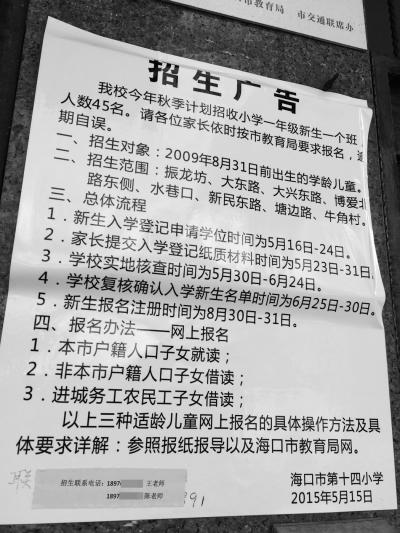 市教育局 市交通联席办
招生广告
我校今年秋季计划招收小学一年级新生一个班，
人数45名。请各位家长依时按市教育局要求报名，逾
期自误。
一、招生对象：2009年8月31日前出生的学龄儿童。
二、招生范围：振龙坊、大东路、大兴东路、博爱北
路东侧、水巷口、新民东路、塘边路、牛角村。
三、总体流程
1．新生入学登记申请学位时间为5月16日-24日。
2．家长提交入学登记纸质材料时间为5月23日-31日
3．学校实地核查时间为5月30日-6月24日。
4．学校复核确认入学新生名单时间为6月25日-30日。
5．新生报名注册时间为8月30日-31日。
四、报名办法——网上报名
1．本市户籍人口子女就读；
2．非本市户籍人口子女借读；
3．进城务工农民工子女借读；
以上三种适龄儿童网上报名的具体操作方法及具
体要求详解：参照报纸报导以及海口市教育局网。
联
招生联系电话：1897 王老师
1897 陈老师
891
海口市第十四小学
2015年5月15日